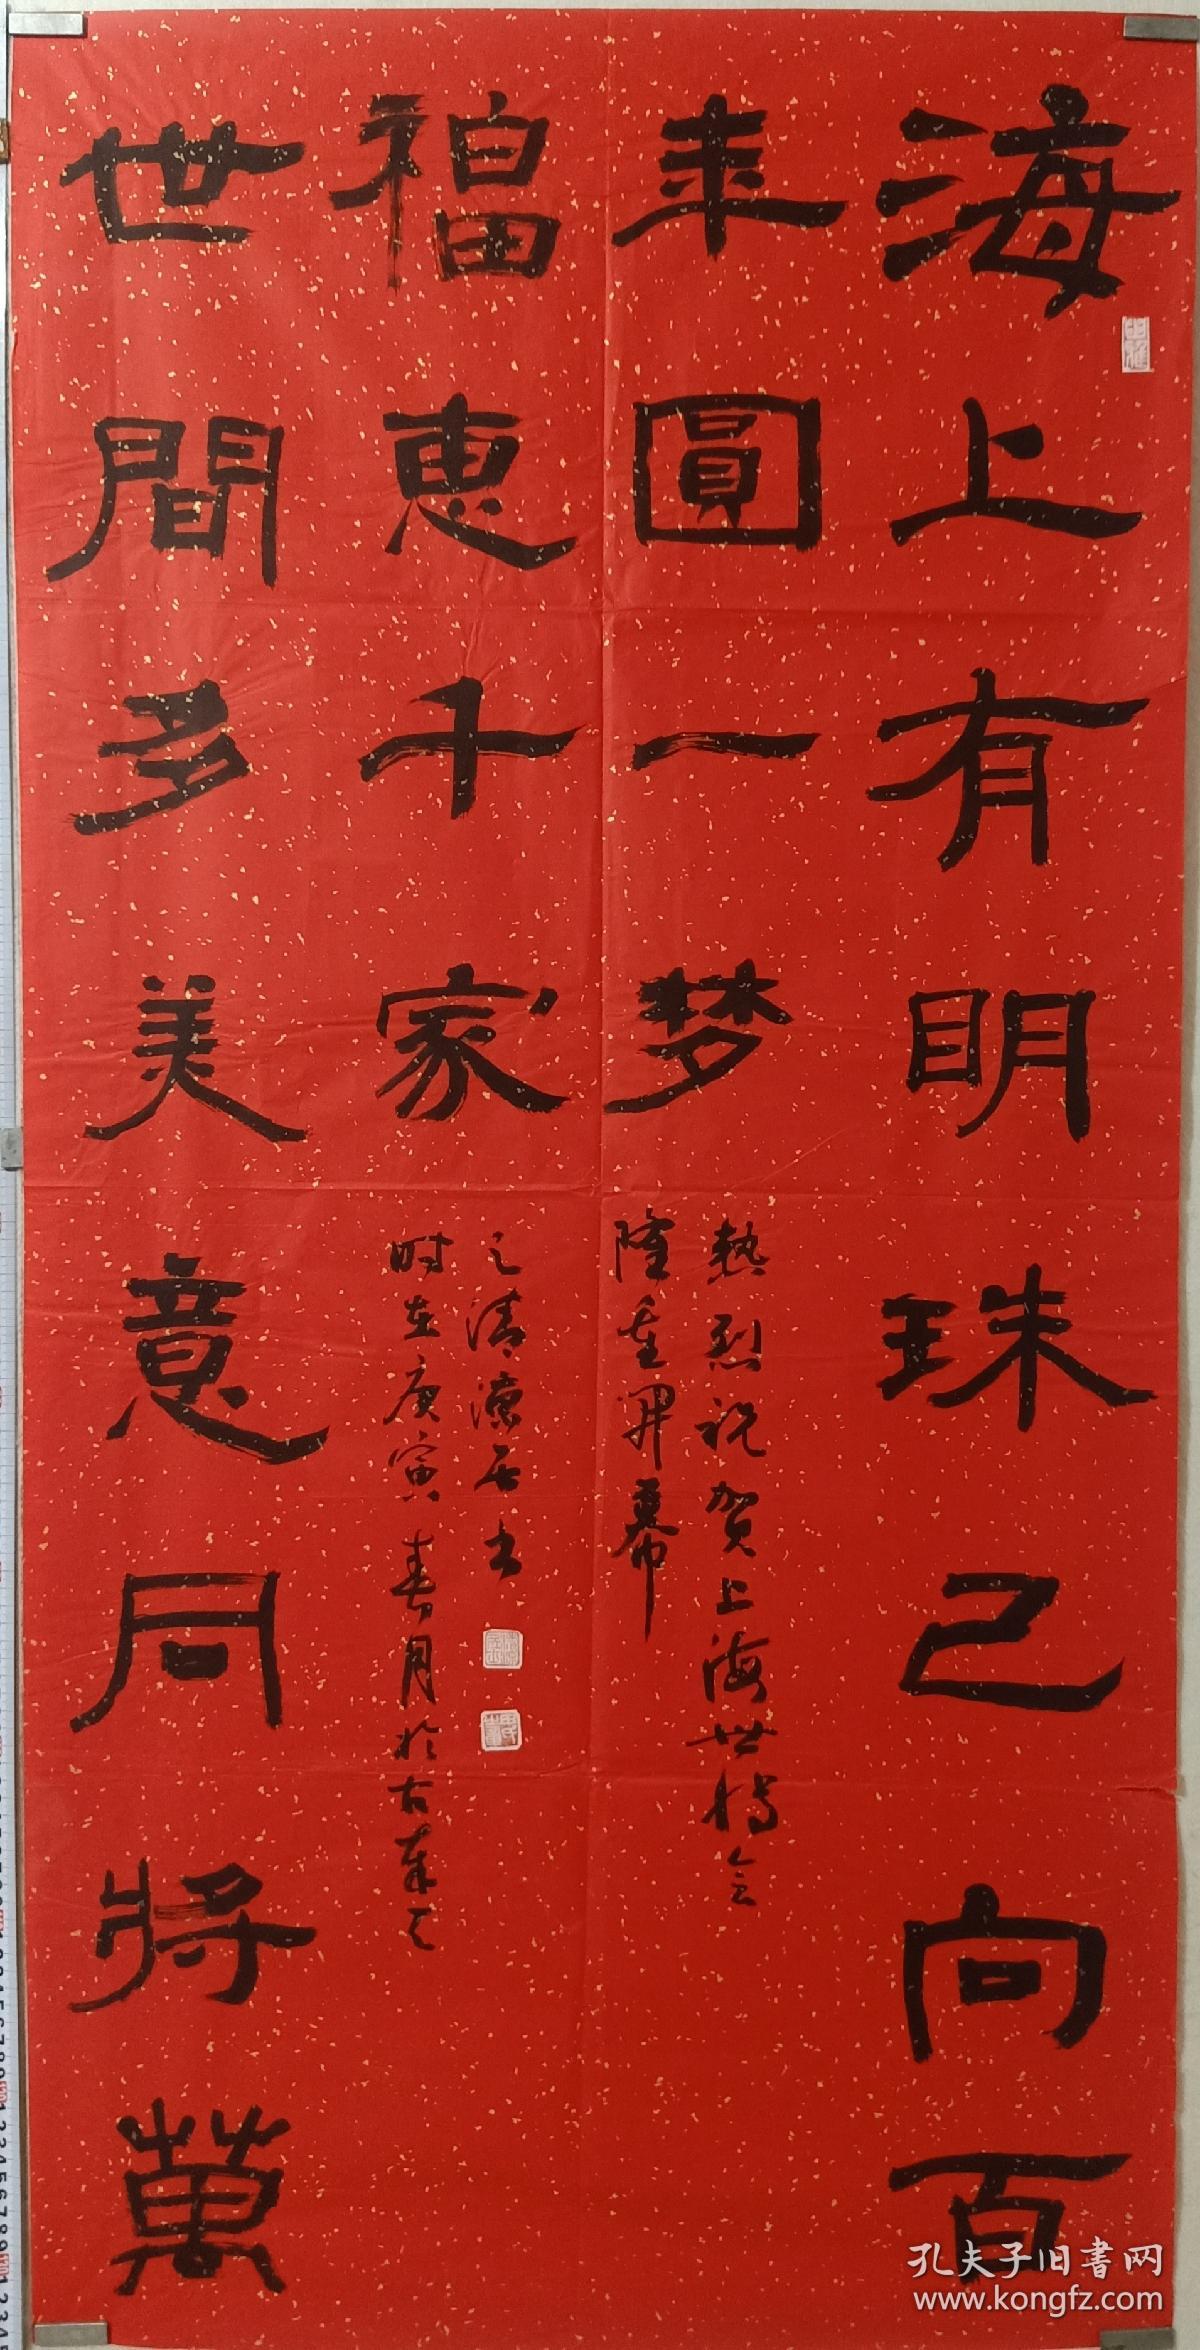 海上有明珠已向百
来圓一梦
熱烈祝賀上海世博会
隆重開幕
世間多美意同將萬
福惠千家
时在庚寅春月於古華之
之清源居書
孔夫子旧書网
www.kongfz.com